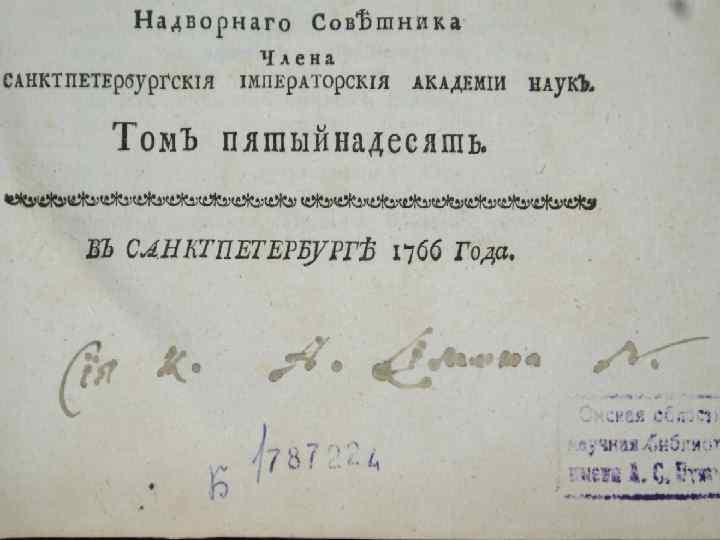 Надворнаго Совѣтника
Члена
САНКТПЕТЕРБУРГСКІЯ ІМПЕРАТОРСКІЯ АКАДЕМІИ НАУКЪ.
Томъ пятыйнадесять.
ВЪ САНКТПЕТЕРБУРГѢ 1766 Года.
Сія к. А.
Б 1787224
Омская област
научная библиот
имени А. С. Пушк